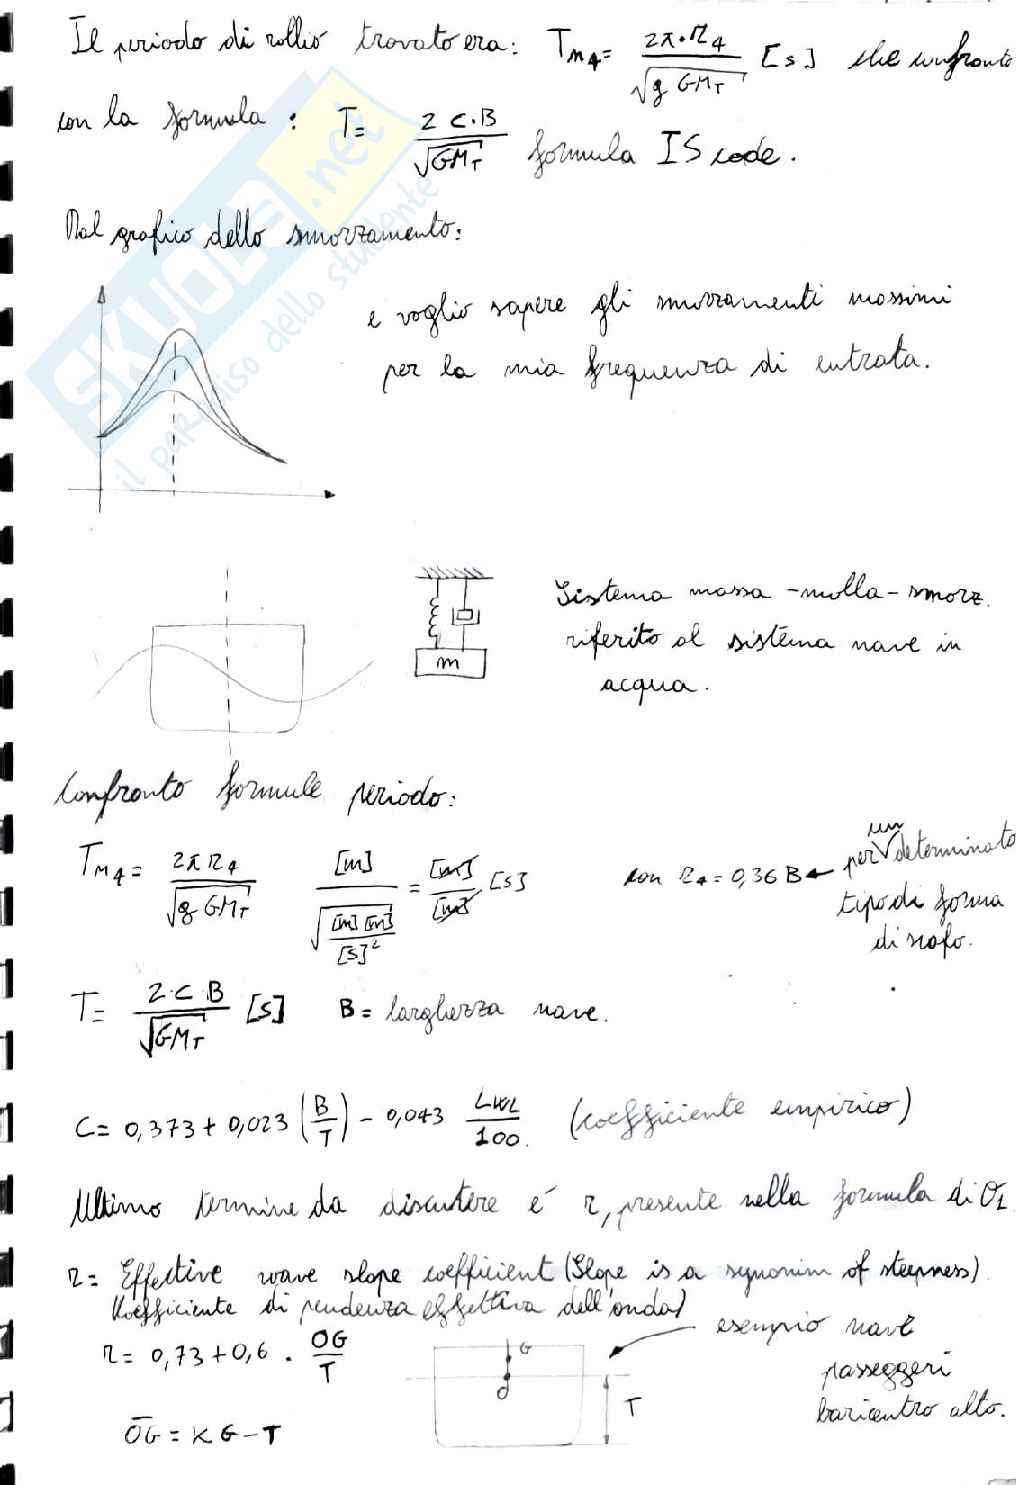 Il periodo di rollio trovato era: Tn4 = 2π·r4 / √(g GMT) [s] che confronto
con la formula: T = 2 C·B / √GMT formula IS code.
Dal grafico dello smorzamento:
e voglio sapere gli smorzamenti massimi
per la mia frequenza di entrata.
SKUOLA.net
il paradiso dello studente
Sistema massa-molla-smorz.
riferito al sistema nave in
acqua.
m
Confronto formule periodo:
Tn4 = 2π r4 / √(g GMT) [m] / √([m][m] / [s]²) = [m] / [m] [s] con r4 = 0,36 B ← per un determinato
tipo di forma
di scafo.
T = 2·C B / √GMT [s] B = larghezza nave.
C = 0,373 + 0,023 (B/T) - 0,043 LWL/100 (coefficiente empirico)
Ultimo termine da discutere é r, presente nella formula di σ1
r = Effective wave slope coefficient (Slope is a synonim of steepness)
(Koefficiente di pendenza effettiva dell'onda)
r = 0,73 + 0,6 · OG/T
esempio nave
passeggeri
baricentro alto.
G
O
T
OG = KG - T